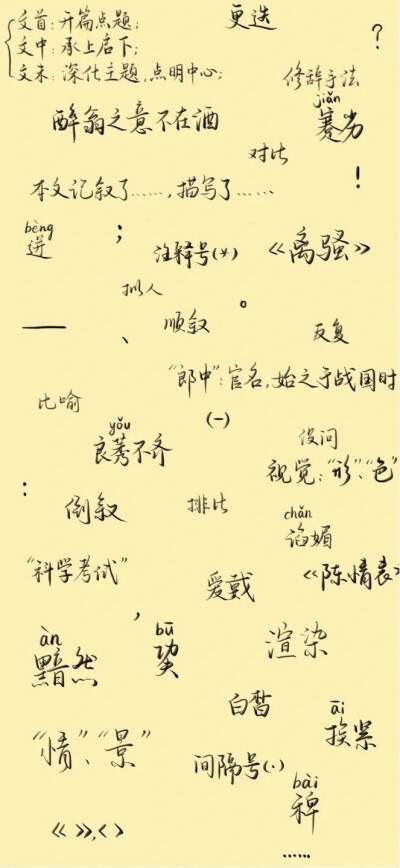 文首:开篇点题;
更迭
文中:承上启下;
?
文末:深化主题,点明中心;
修辞手法
jiǎn
醉翁之意不在酒
蹇劣
对比
本文记叙了……,描写了……
!
bèng
迸
;
注释号(*)
《离骚》
拟人
。
——
、
顺叙
反复
“郎中”:官名,始之于战国时
比喻
(-)
yǒu
良莠不齐
设问
视觉:“形”、“色”
:
倒叙
排比
chǎn
谄媚
“科学考试”
爱戴
《陈情表》
,
àn
黯然
bū
渲染
白皙
āi
挨紧
“情”、“景”
间隔号(·)
bài
稗
《》,<>
……